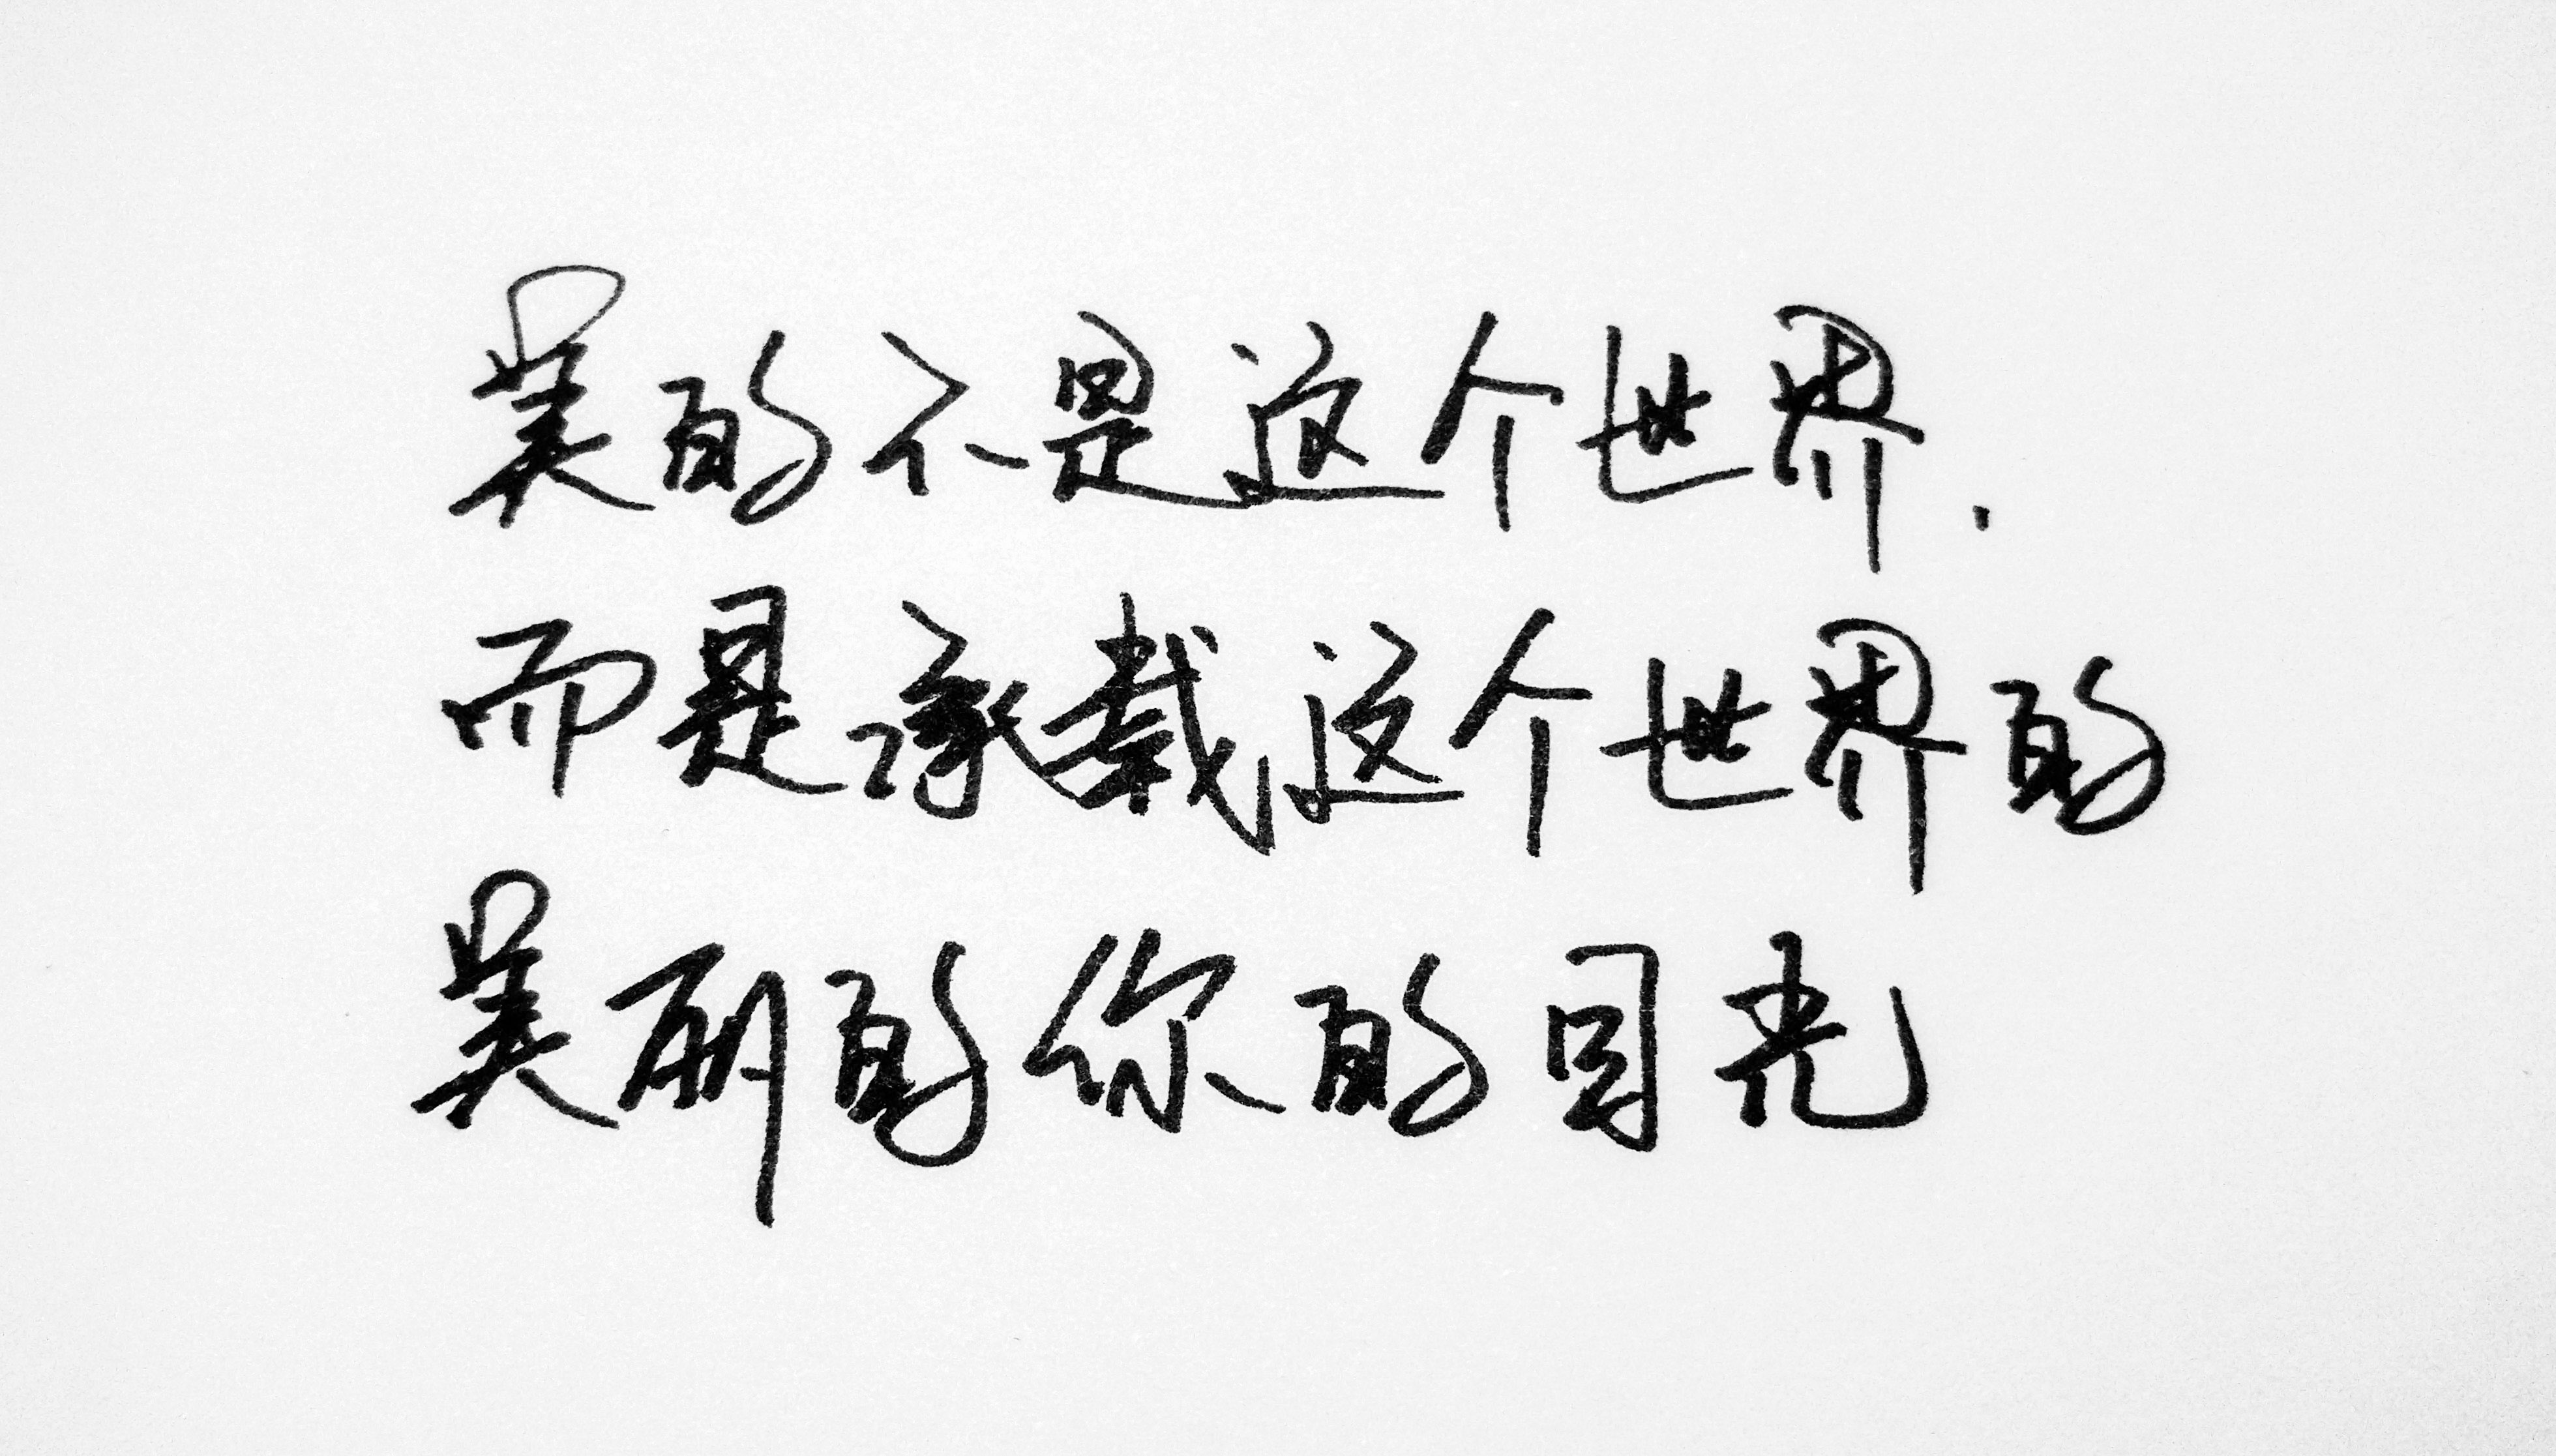 美的不是这个世界.
而是承载这个世界的
美丽的你的目光